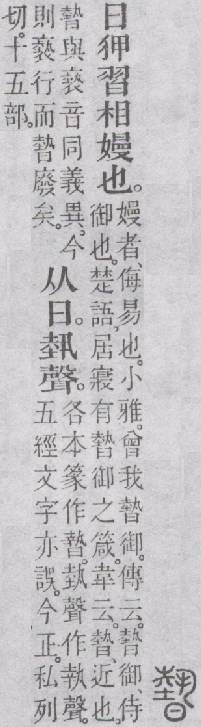 日狎習相嫚也。
嫚者、侮易也。小雅。曾我暬御。傳云。暬御、侍
御也。楚語、居寢有暬御之箴。韋云。暬、近也。
暬與褻音同義異。今
則褻行而暬廢矣。
从日。埶聲。
各本篆作暬。埶聲作執聲。
五經文字亦誤。今正。私列
切。十五部。